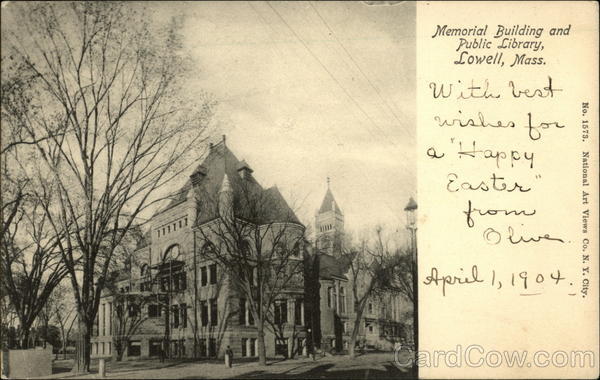 Memorial Building and
Public Library,
Lowell, Mass.
With best
wishes for
a "Happy
Easter"
from
Olive.
April 1, 1904.
No. 1573. National Art Views Co. N. Y. City.
CardCow.com